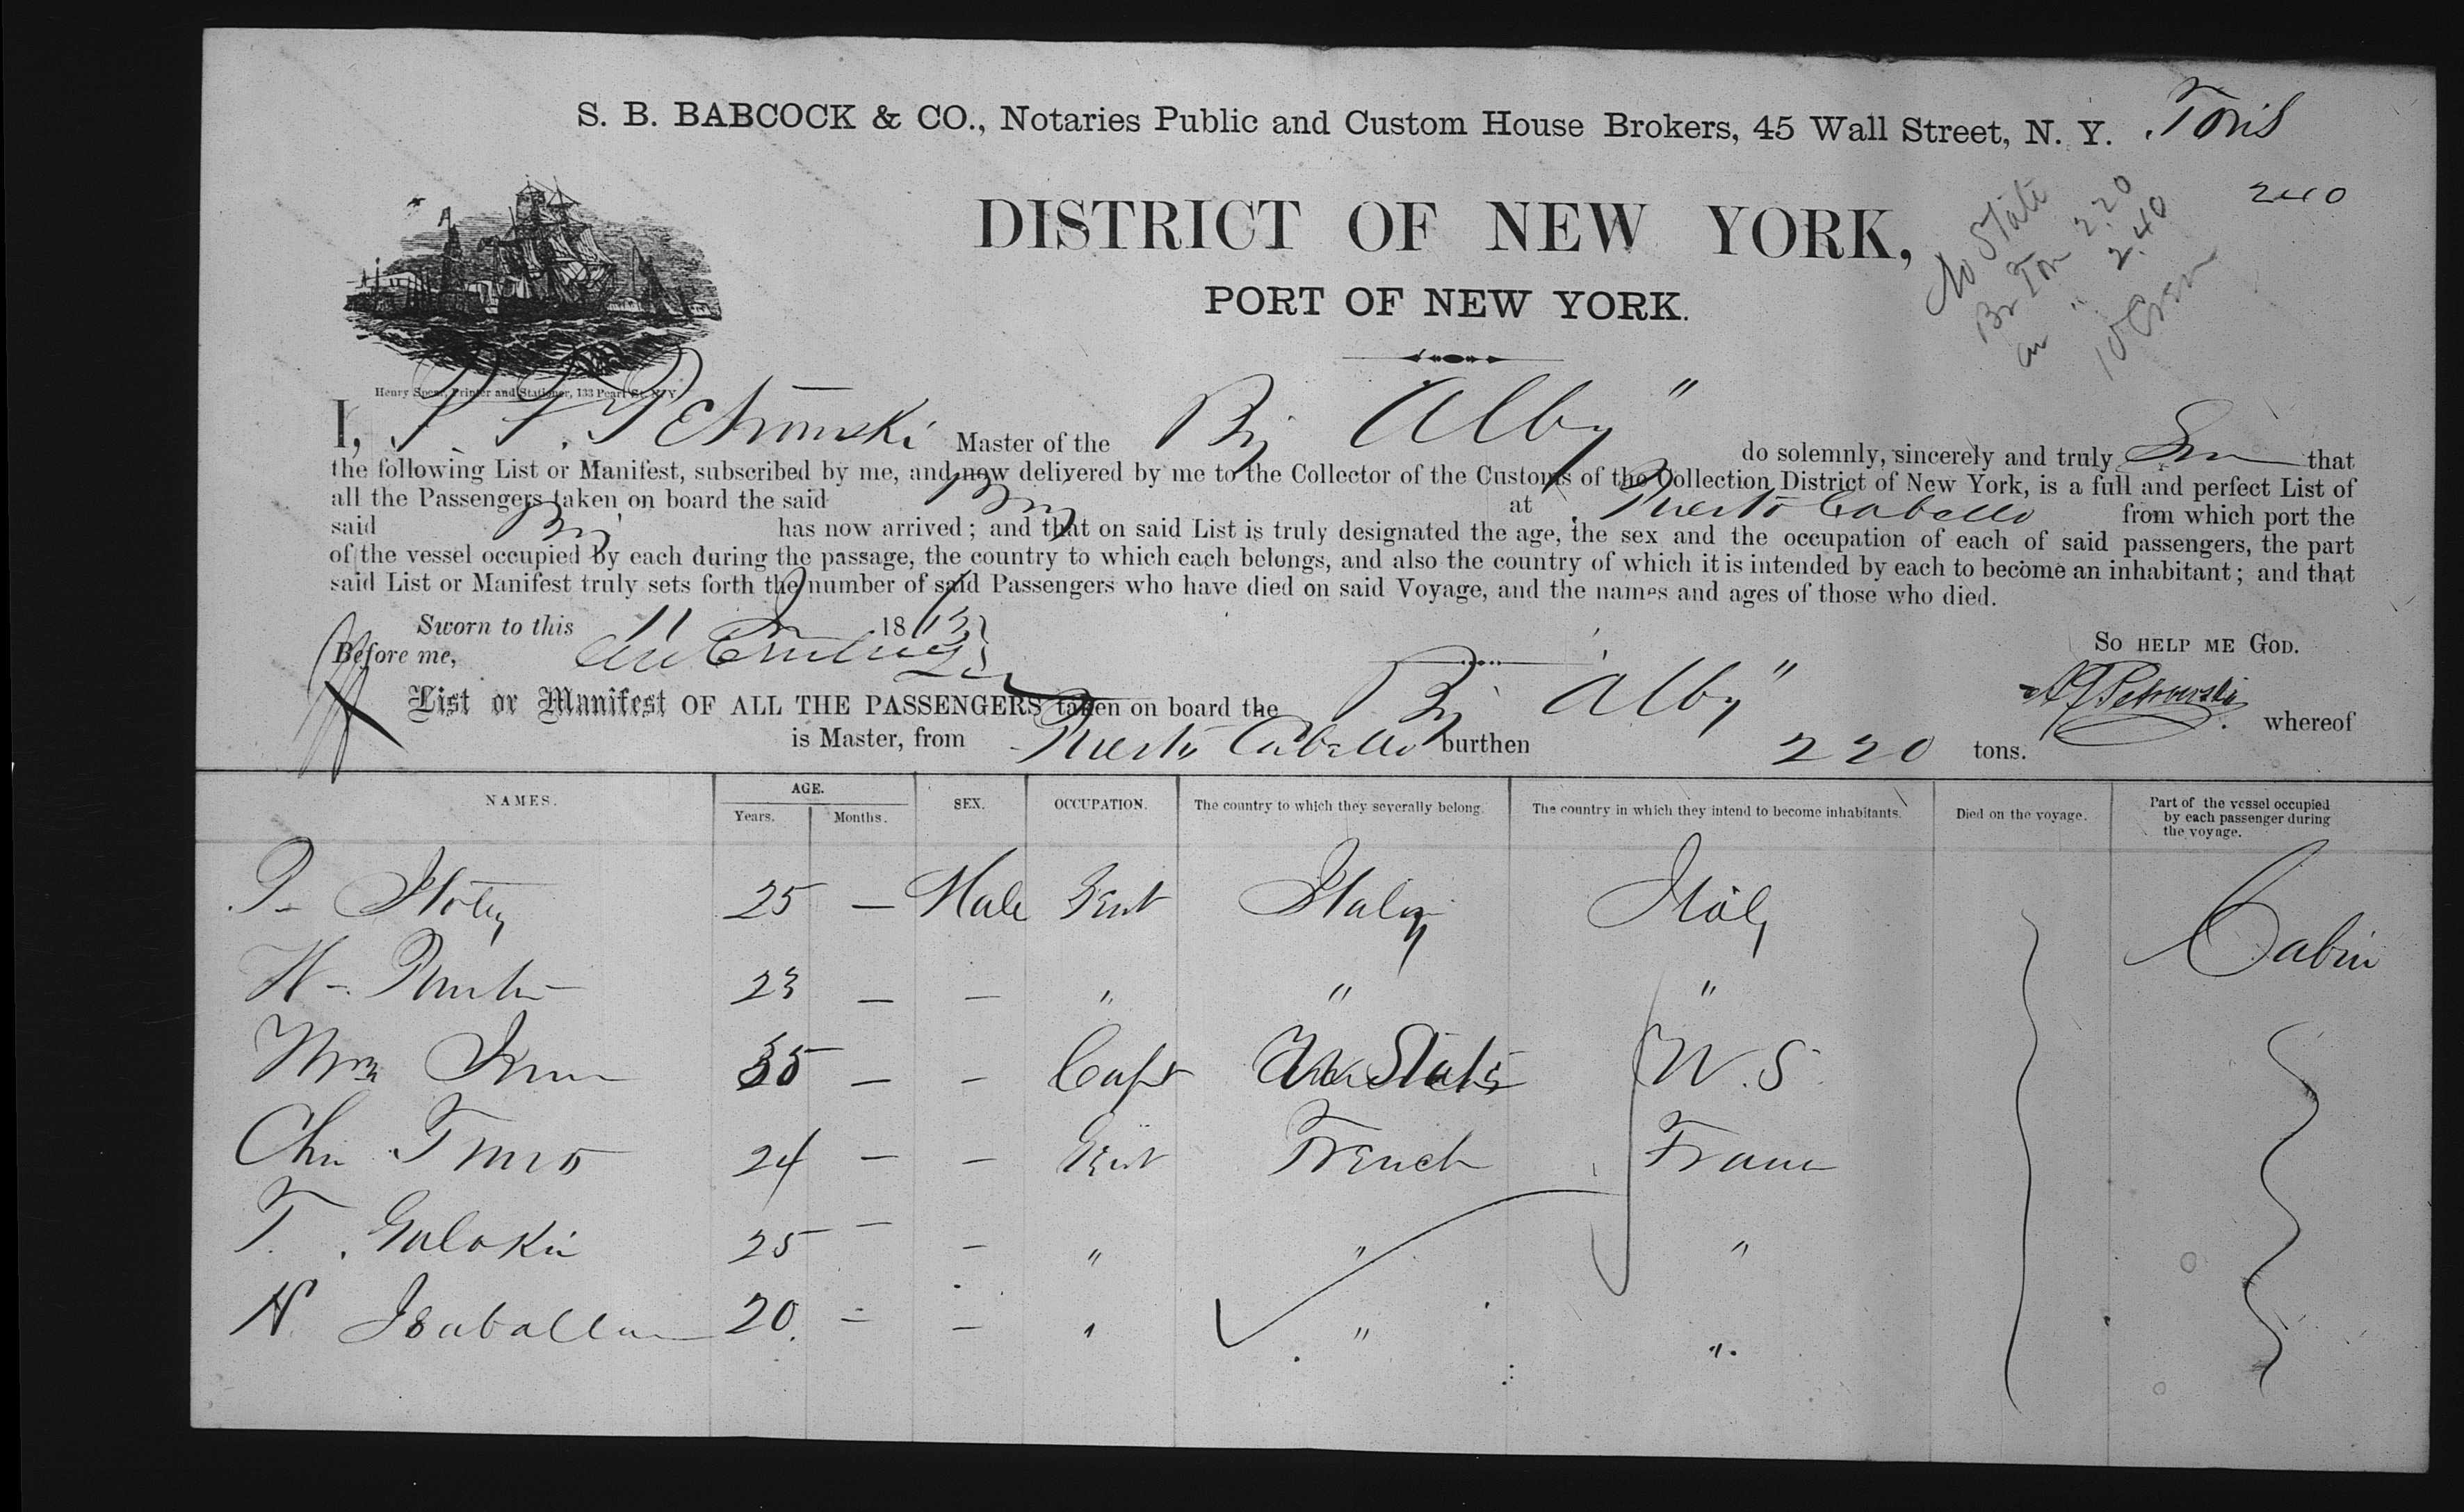 S. B. BABCOCK & CO., Notaries Public and Custom House Brokers, 45 Wall Street, N. Y.
Tons
240
No State
Br Ton 220
Am " 240
10 Crew
DISTRICT OF NEW YORK,
PORT OF NEW YORK.
Henry Spear, Printer and Stationer, 133 Pearl St. N.Y.
I, Petrowski Master of the Brig "Alby" do solemnly, sincerely and truly that
the following List or Manifest, subscribed by me, and now delivered by me to the Collector of the Customs of the Collection District of New York, is a full and perfect List of
all the Passengers taken on board the said Brig at Puerto Cabello from which port the
said Brig has now arrived; and that on said List is truly designated the age, the sex and the occupation of each of said passengers, the part
of the vessel occupied by each during the passage, the country to which each belongs, and also the country of which it is intended by each to become an inhabitant; and that
said List or Manifest truly sets forth the number of said Passengers who have died on said Voyage, and the names and ages of those who died.
Sworn to this 11 18
Before me,
SO HELP ME GOD.
List or Manifest OF ALL THE PASSENGERS taken on board the Brig "Alby" Petrowski whereof
is Master, from Puerto Cabello burthen 220 tons.
NAMES. AGE. Years. Months. SEX. OCCUPATION. The country to which they severally belong. The country in which they intend to become inhabitants. Died on the voyage. Part of the vessel occupied by each passenger during the voyage.
P. 25 — Male Gent Italy Italy Cabin
H. 23 — — " " "
Wm 35 — — Capt States U.S.
24 — — Gent French France
T. 25 — — " " "
N. 20 — — " " "